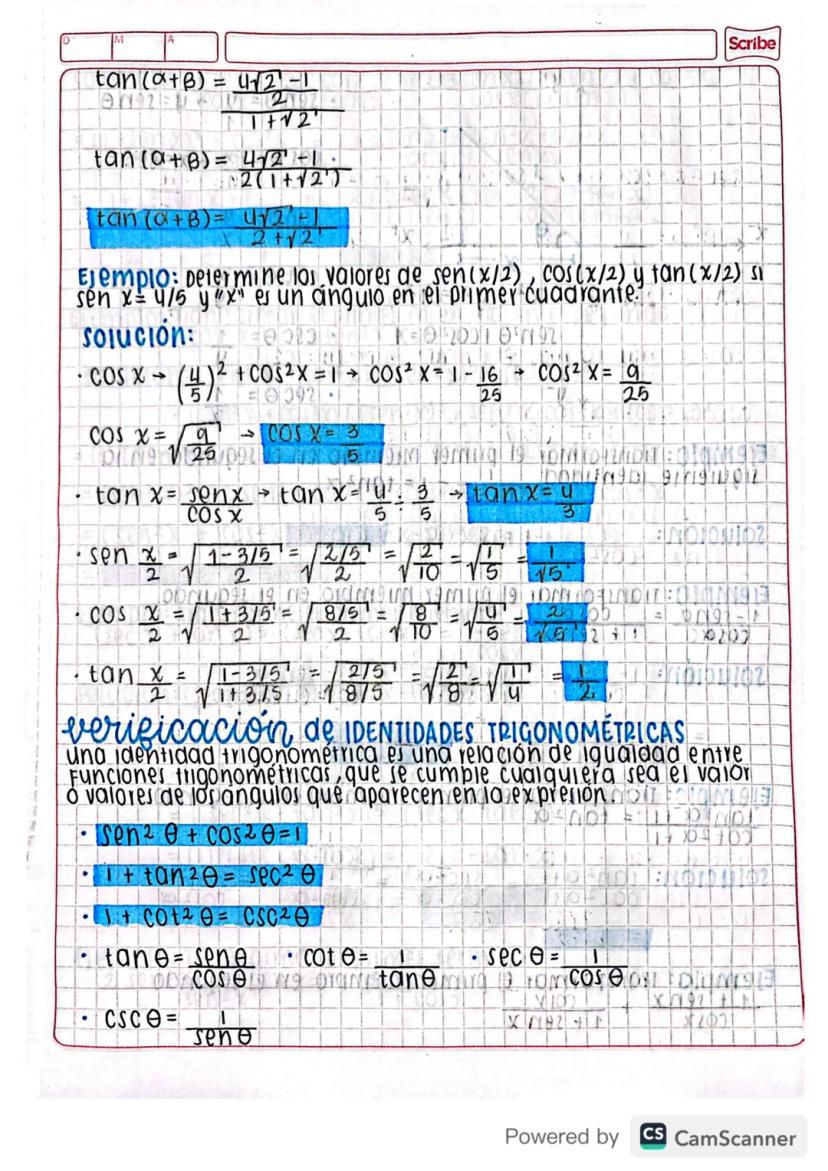 D M A Scribe
tan(α+β) = (4√2 - 1)/2 / (1+√2)
tan(α+β) = (4√2 - 1)/(2(1+√2))
tan(α+β) = (4√2 - 1)/(2+√2)
Ejemplo: Determine los valores de sen(x/2), cos(x/2) y tan(x/2) si
sen x = 4/5 y "x" es un ángulo en el primer cuadrante.
Solución:
· cos x → (4/5)² + cos²x = 1 → cos²x = 1 - 16/25 → cos²x = 9/25
cos x = √(9/25) → cos x = 3/5
· tan x = sen x/cos x → tan x = 4/5 ÷ 3/5 → tan x = 4/3
· sen x/2 = √((1-3/5)/2) = √((2/5)/2) = √(2/10) = √(1/5) = 1/√5
· cos x/2 = √((1+3/5)/2) = √((8/5)/2) = √(8/10) = √(4/5) = 2/√5
· tan x/2 = √((1-3/5)/(1+3/5)) = √((2/5)/(8/5)) = √(2/8) = √(1/4) = 1/2
verificación de IDENTIDADES TRIGONOMÉTRICAS
una identidad trigonométrica es una relación de igualdad entre
funciones trigonométricas, que se cumple cualquiera sea el valor
o valores de los ángulos que aparecen en la expresión.
· sen²θ + cos²θ = 1
· 1 + tan²θ = sec²θ
· 1 + cot²θ = csc²θ
· tan θ = sen θ/cos θ · cot θ = 1/tan θ · sec θ = 1/cos θ
· csc θ = 1/sen θ
Powered by CS CamScanner